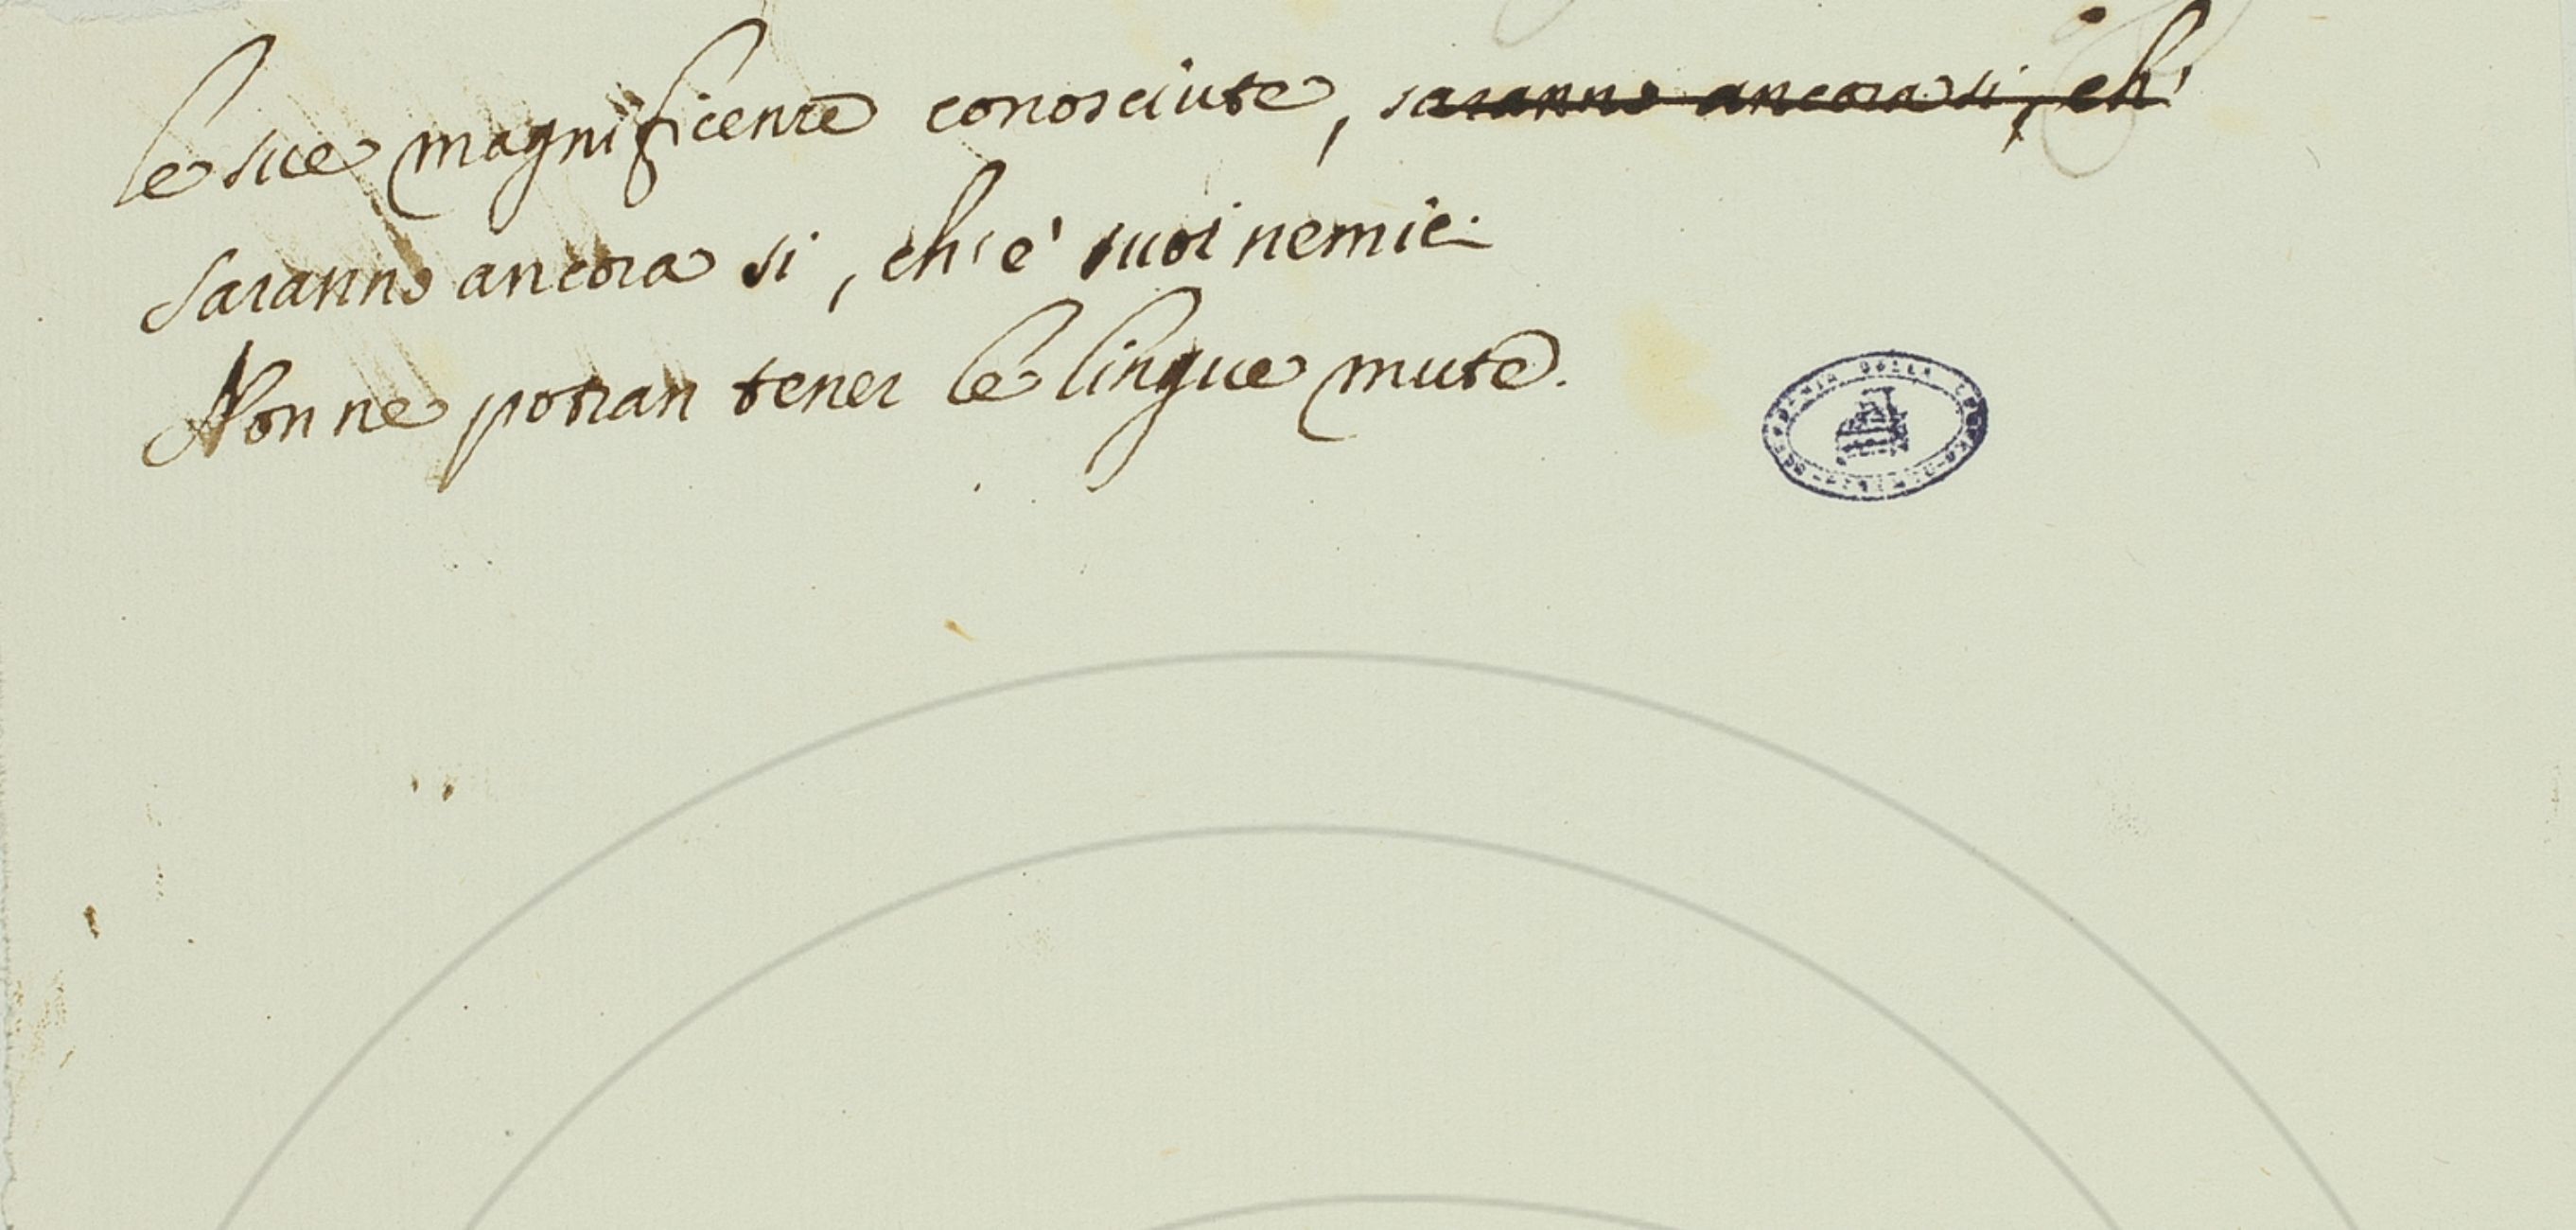 le sue magnificenze conosciute, saranno ancora si, ch'
saranno ancora si, ch'e' suoi nemici
Non ne potran tener le lingue mute.
DELLA